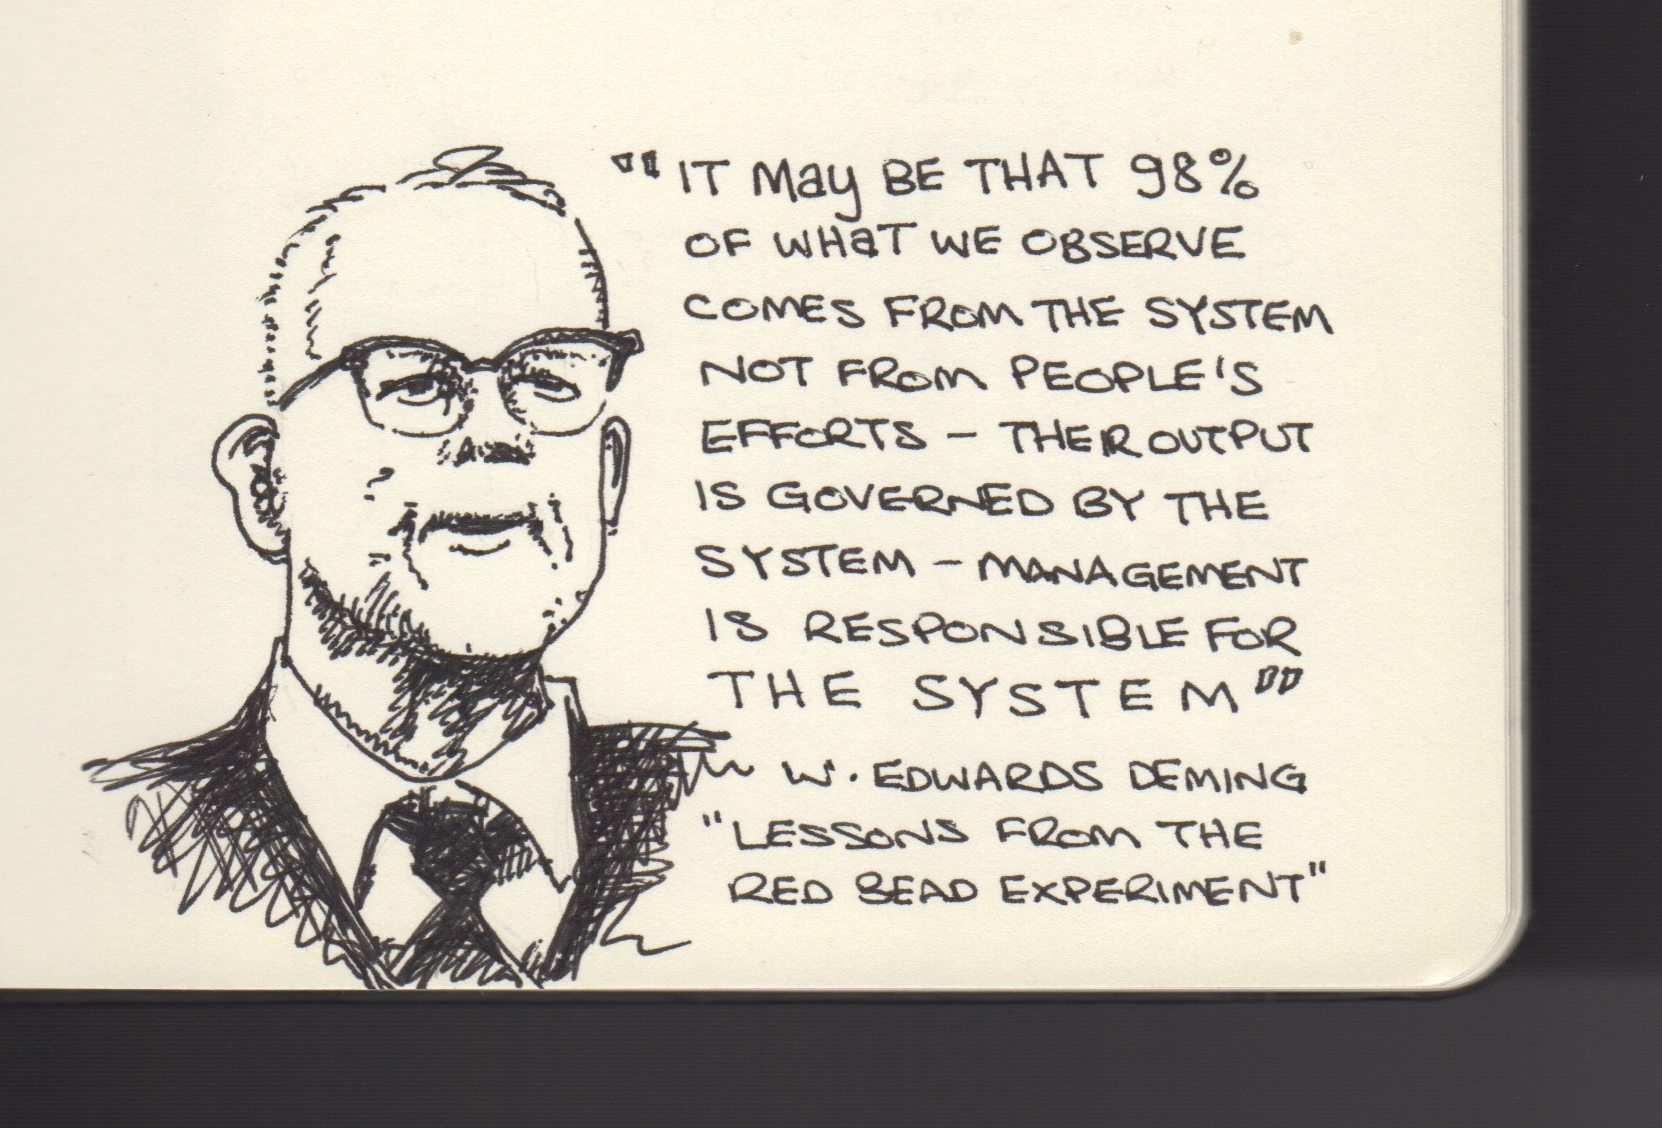 "IT MAY BE THAT 98%
OF WHAT WE OBSERVE
COMES FROM THE SYSTEM
NOT FROM PEOPLE'S
EFFORTS – THEIR OUTPUT
IS GOVERNED BY THE
SYSTEM – MANAGEMENT
IS RESPONSIBLE FOR
THE SYSTEM"
~ W. EDWARDS DEMING
"LESSONS FROM THE
RED BEAD EXPERIMENT"